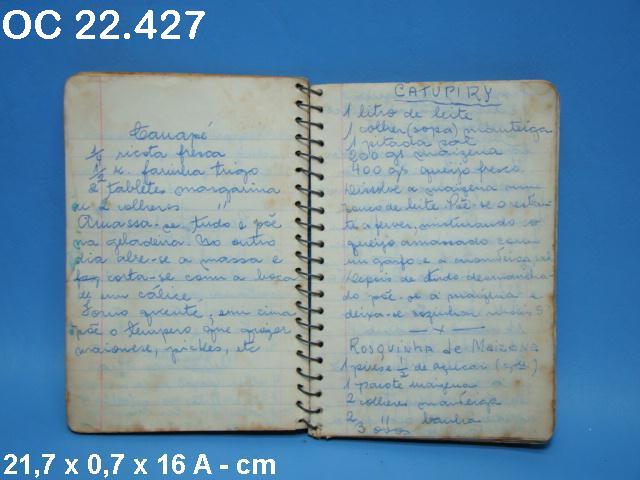 OC 22.427
Canapé
1/4 ricota fresca
1/2 k. farinha trigo
2 tabletes margarina
ou 2 colheres "
Amassa-se tudo e põe
na geladeira. No outro
dia abre-se a massa e
corta-se com a boca
de um cálice.
Forno quente, em cima
põe o tempero que quizer
maionese, pickles, etc
CATUPIRY
1 litro de leite
1 colher (sopa) manteiga
1 pitada sal
200 gs maizena
400 gs queijo fresco.
Dissolve a maizena num
pouco de leite. Põe-se o restan
te a ferver, misturando o
queijo amassado com
um garfo e a manteiga, sal
Depois de tudo desmancha-
do põe-se a maizena e
deixa-se cozinhar mais 5
x
ROSQUINHA de MAIZENA
1 pires 1/2 de açúcar
1 pacote maizena
2 colheres manteiga
2 " banha
3 ovos
21,7 x 0,7 x 16 A - cm